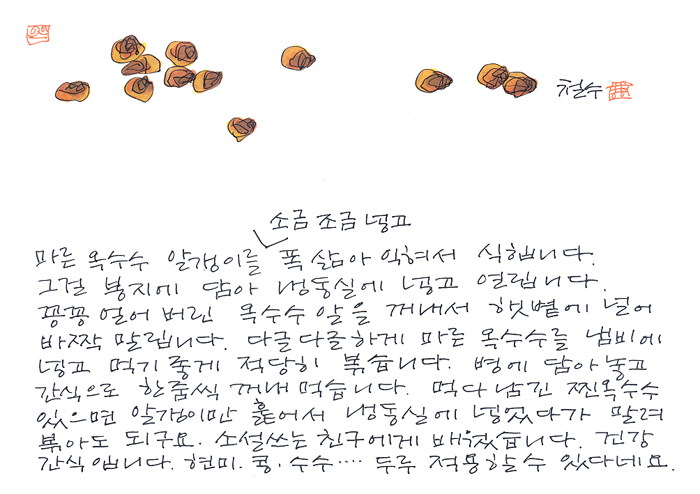 철수
소금 조금 넣고
마른 옥수수 알갱이를 폭 삶아 익혀서 식힙니다.
그걸 봉지에 담아 냉동실에 넣고 얼립니다.
꽁꽁 얼어 버린 옥수수 알을 꺼내서 햇볕에 널어
바짝 말립니다. 다글다글하게 마른 옥수수를 냄비에
넣고 먹기 좋게 적당히 볶습니다. 병에 담아 놓고
간식으로 한줌씩 꺼내 먹습니다. 먹다 남긴 찐옥수수
있으면 알갱이만 훑어서 냉동실에 넣었다가 말려
볶아도 되구요. 소설쓰는 친구에게 배웠습니다. 건강
간식입니다. 현미. 콩. 수수···· 두루 적용할 수 있다네요.